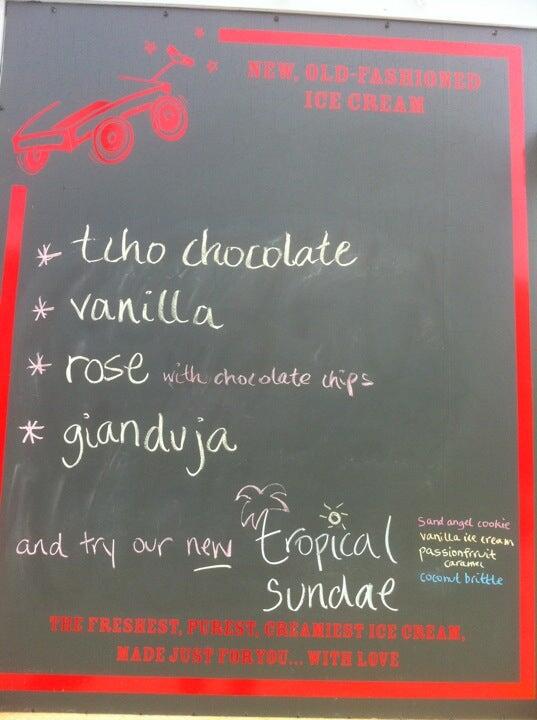 NEW, OLD-FASHIONED
ICE CREAM
* tcho chocolate
* vanilla
* rose with chocolate chips
* gianduja
and try our new tropical
sundae
sand angel cookie
vanilla ice cream
passionfruit
caramel
coconut brittle
THE FRESHEST, PUREST, CREAMIEST ICE CREAM,
MADE JUST FOR YOU... WITH LOVE